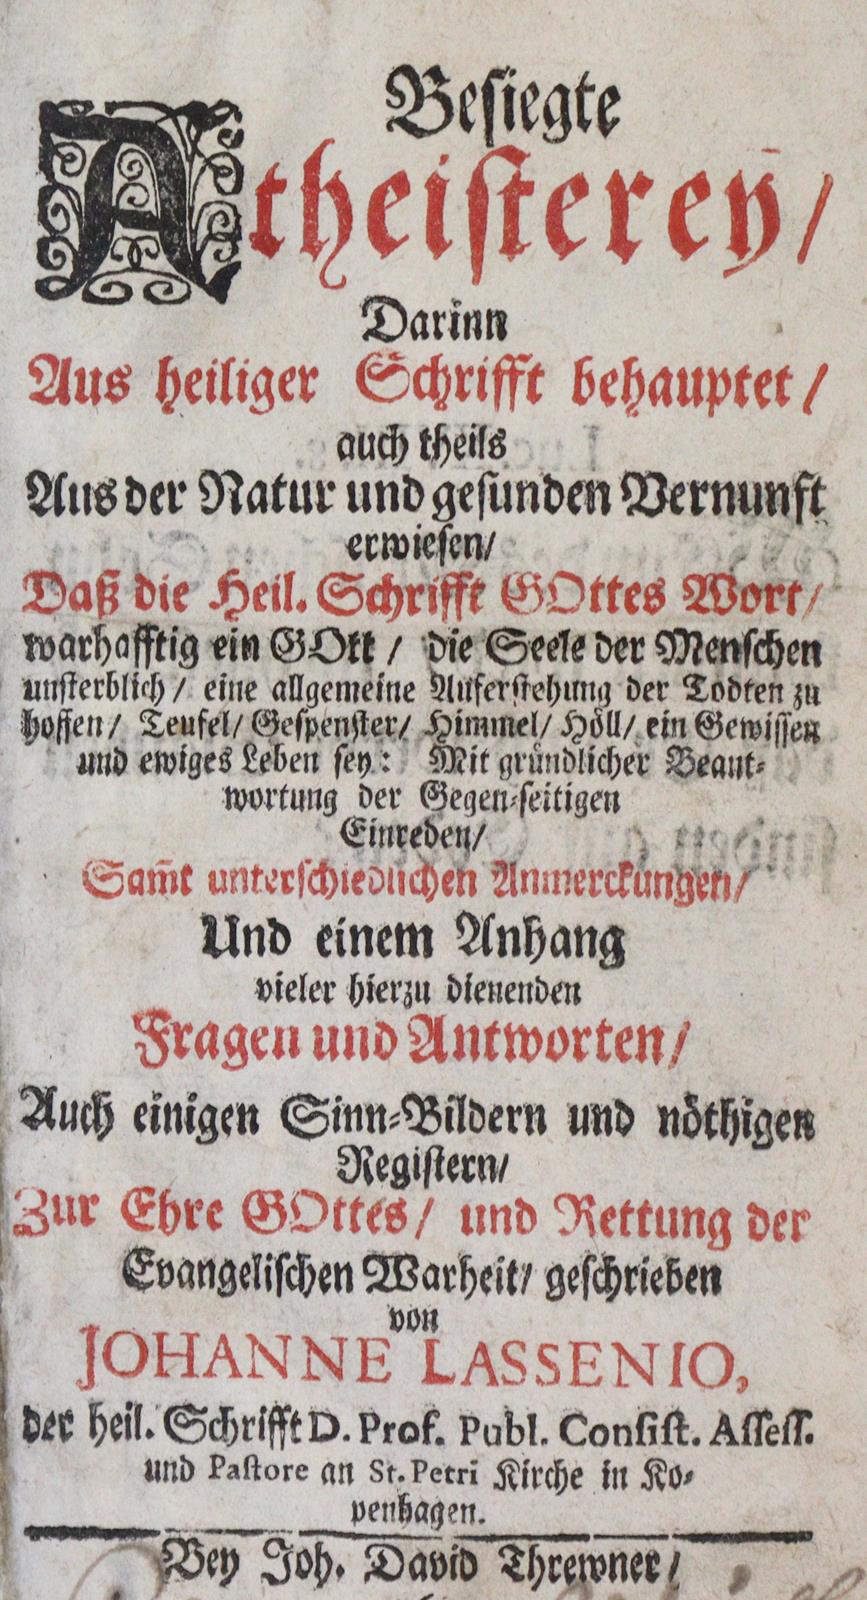 Besiegte
Atheisterey/
Darinn
Aus heiliger Schrifft behauptet/
auch theils
Aus der Natur und gesunden Vernunft
erwiesen/
Daß die Heil. Schrifft GOttes Wort/
warhafftig ein GOtt/ die Seele der Menschen
unsterblich/ eine allgemeine Auferstehung der Todten zu
hoffen/ Teufel/ Gespenster/ Himmel/ Höll/ ein Gewissen
und ewiges Leben sey: Mit gründlicher Beant-
wortung der Gegen-seitigen
Einreden/
Sam̃t unterschiedlichen Anmerckungen/
Und einem Anhang
vieler hierzu dienenden
Fragen und Antworten/
Auch einigen Sinn-Bildern und nöthigen
Registern/
Zur Ehre GOttes/ und Rettung der
Evangelischen Warheit/ geschrieben
von
JOHANNE LASSENIO,
der heil. Schrifft D. Prof. Publ. Consist. Assess.
und Pastore an St. Petri Kirche in Ko-
penhagen.
Bey Joh. David Threwner/